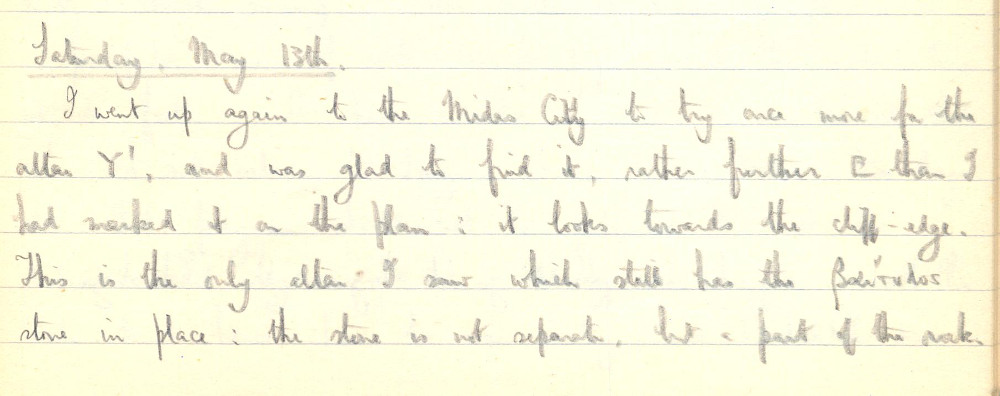 Saturday, May 13th.
I went up again to the Midas City to try once more for the
altar Y', and was glad to find it, rather further E than I
had marked it on the plan : it looks towards the cliff-edge.
This is the only altar I saw which still has the βαίτυλος
stone in place : the stone is not separate, but a part of the rock.